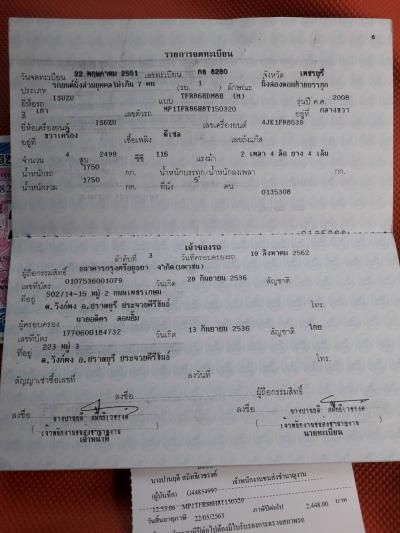 8
รายการจดทะเบียน
วันจดทะเบียน 22 พฤษภาคม 2551 เลขทะเบียน กธ 8280 จังหวัด เพชรบุรี
ประเภท รถยนต์นั่งส่วนบุคคลไม่เกิน 7 คน (รย. 1 ) ลักษณะ นั่งสองตอนท้ายบรรทุก
ยี่ห้อรถ ISUZU แบบ TFR86HDM8H (M) รุ่นปี ค.ศ. 2008
สี เทา เลขตัวรถ MP1TFR86H8T150320 อยู่ที่ กลางขวา
ยี่ห้อเครื่องยนต์ ISUZU เลขเครื่องยนต์ 4JK1FR8539
อยู่ที่ ขวาเครื่อง เชื้อเพลิง ดีเซล เลขถังแก๊ส
จำนวน 4 สูบ 2499 ซีซี 116 แรงม้า 2 เพลา 4 ล้อ ยาง 4 เส้น
น้ำหนักรถ 1750 กก. น้ำหนักบรรทุก/น้ำหนักลงเพลา กก.
น้ำหนักรวม 1750 กก. ที่นั่ง 5 คน
0135308
เจ้าของรถ
ลำดับที่ 3 วันที่ครอบครองรถ 19 สิงหาคม 2562
ผู้ถือกรรมสิทธิ์ ธนาคารกรุงศรีอยุธยา จำกัด(มหาชน)
เลขที่บัตร 0107536001079 วันเกิด 28 กันยายน 2536 สัญชาติ
ที่อยู่ 502/14-15 หมู่ 2 ถนนเพชรเกษม
ต.วังก์พง อ.ปราณบุรี ประจวบคีรีขันธ์ โทร.
ผู้ครอบครอง
เลขที่บัตร 1770600184732 วันเกิด 13 กันยายน 2536 สัญชาติ ไทย
ที่อยู่ 223 หมู่ 3
ต.วังก์พง อ.ปราณบุรี ประจวบคีรีขันธ์ โทร.
สัญญาเช่าซื้อเลขที่ ลงวันที่
ลงชื่อ ผู้ถือกรรมสิทธิ์
ลงชื่อ ลงชื่อ
เจ้าพนักงานขนส่งชำนาญงาน เจ้าพนักงานขนส่งชำนาญงาน
เจ้าหน้าที่ นายทะเบียน
เจ้าพนักงานขนส่งชำนาญงาน
(ผู้บันทึก) ภาษีปีต่อไป 2,448.00 บาท
12:53:06 MP1TFR86H8T150320
วันสิ้นอายุภาษี 22/05/2563